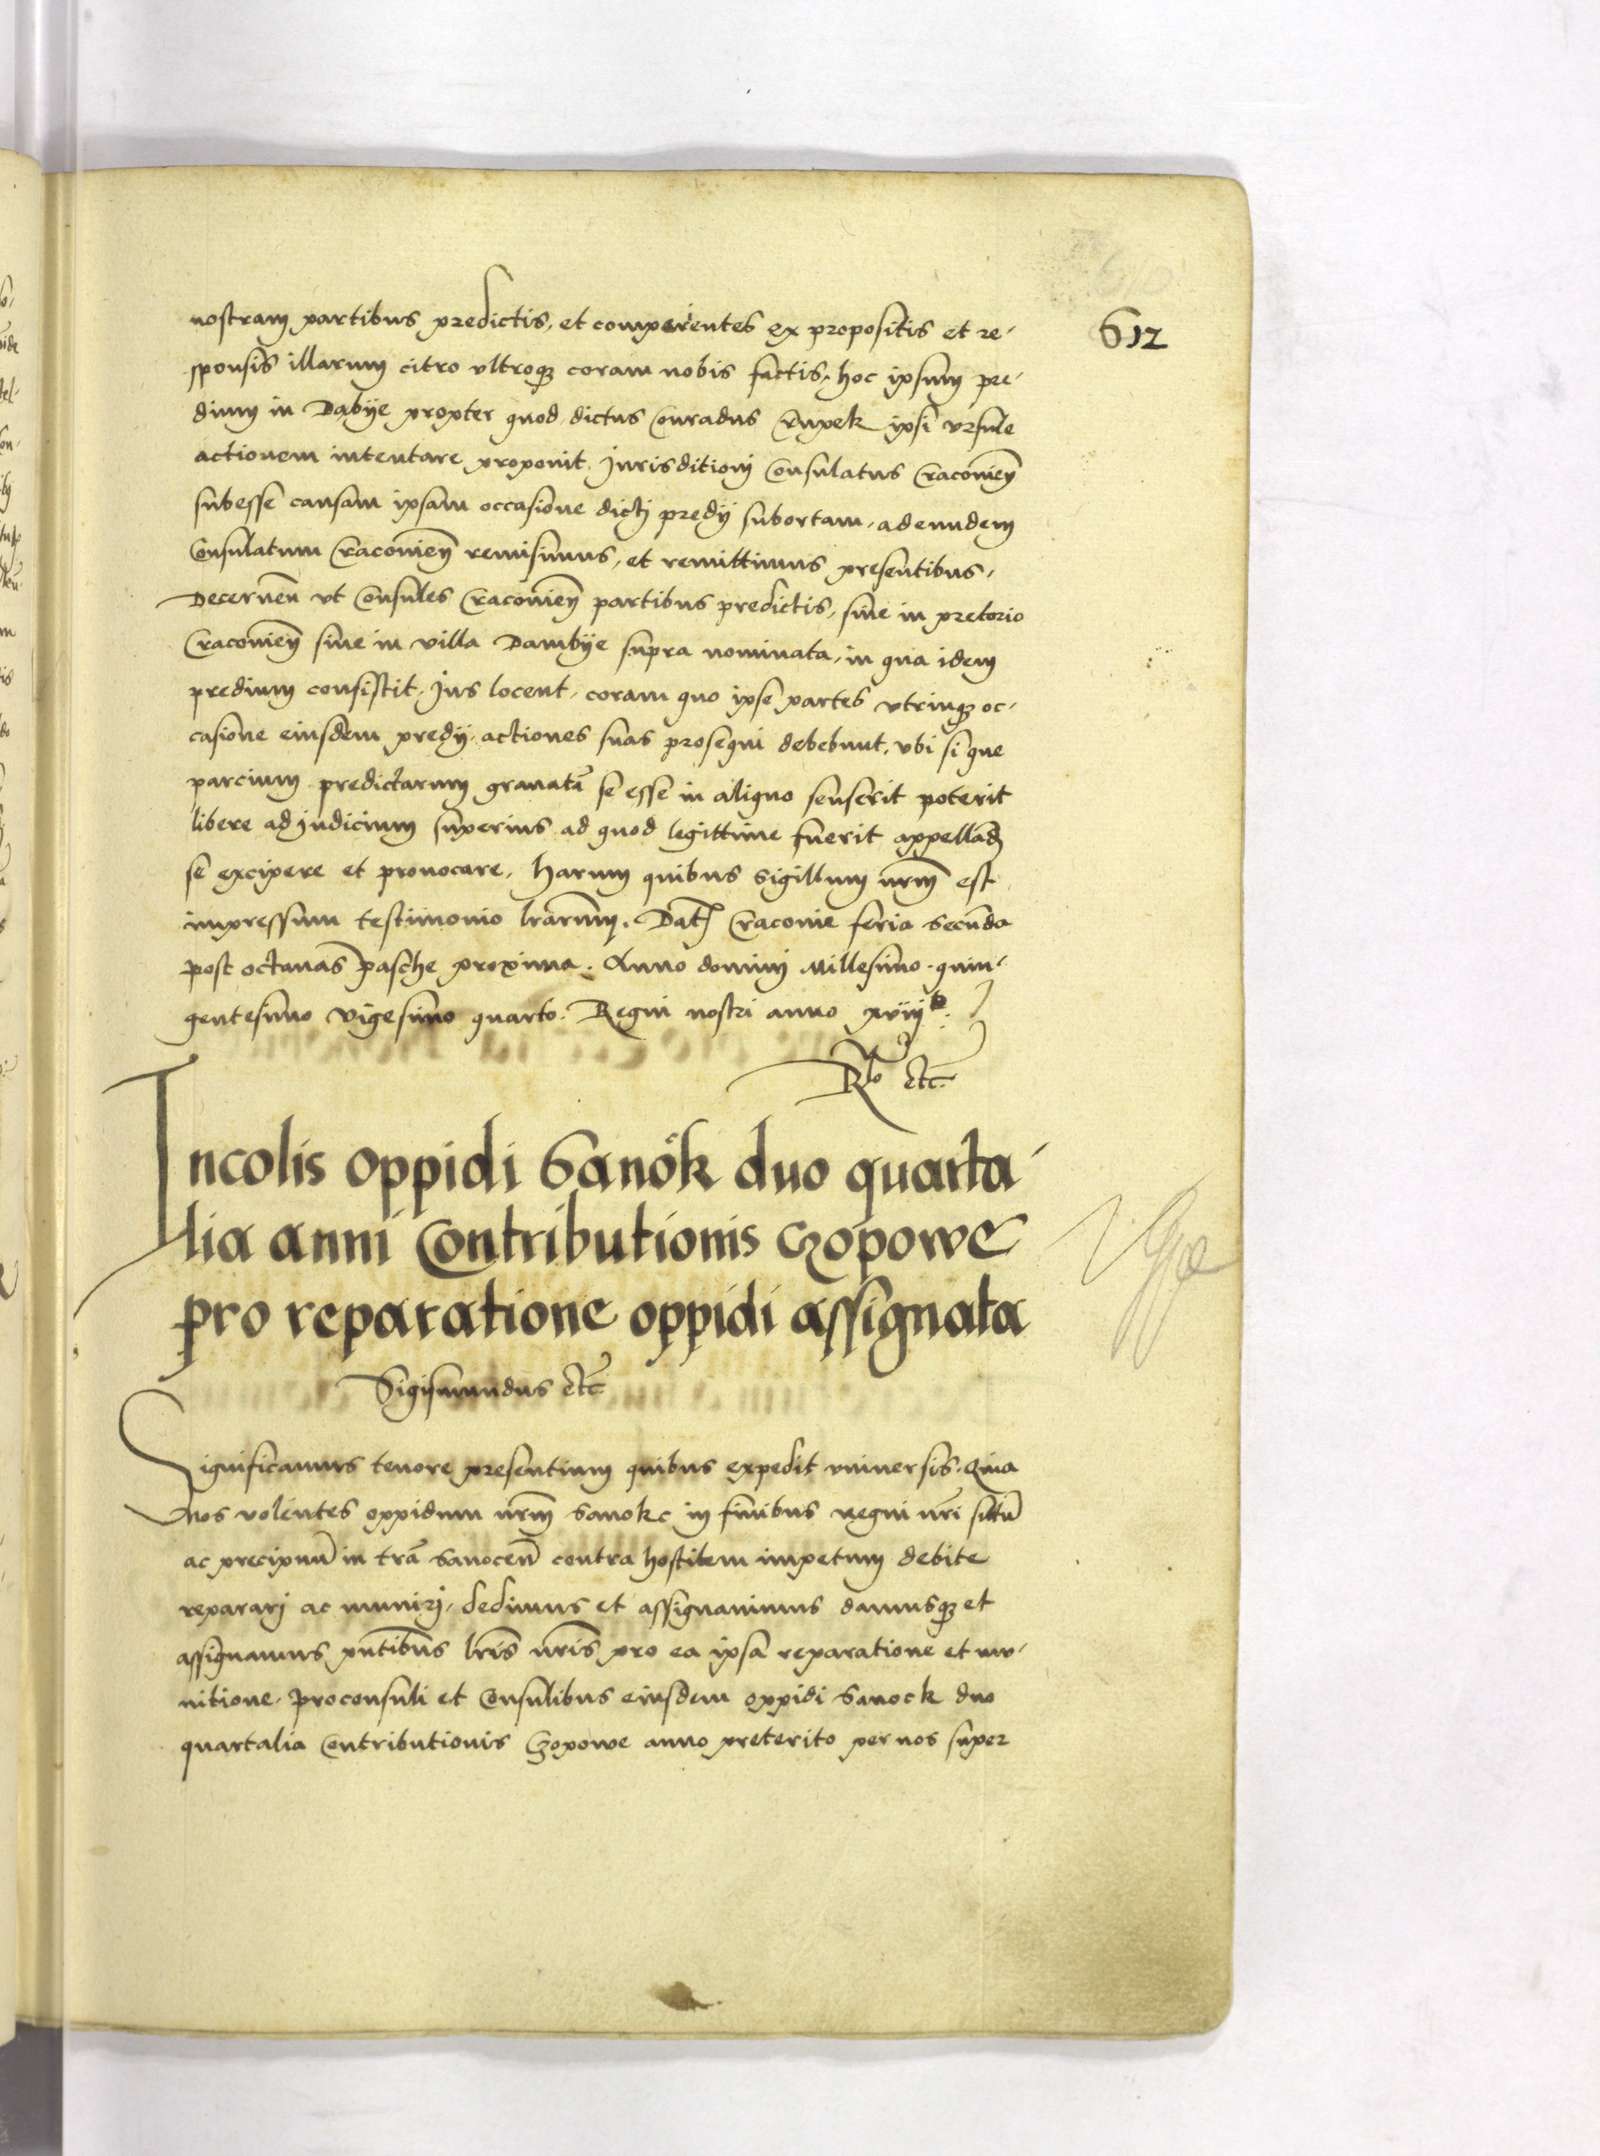 nostram partibus predictis, et comperientes ex propositis et re-
sponsis illarum citro vltroqꝫ coram nobis factis, hoc ipsum pre-
dium in Dabÿe propter quod dictus Conradus Crupek ipsi vrsule
actionem intentare proponit Jurisditioni Consulatus Cracovieñ
subesse causam ipsam occasione dicti predÿ subortam, ad eundem
Consulatum Cracovieñ remisimus, et remittimus presentibus,
Decerneñ vt Consules Cracovieñ partibus predictis, siue in pretorio
Cracovieñ siue in villa Dambÿe supra nominata, in qua idem
predium consistit, Jus locent, coram quo ipse partes vtrinqꝫ oc-
casione eiusdem predÿ actiones suas prosequi debebunt, vbi si que
parcium predictarum grauatā se esse in aliquo senserit poterit
libere ad Judicium superius ad quod legittime fuerit appellañd
se excipere et prouocare, Harum quibus Sigillum nrm̄ est
impressum testimonio lrārum. Dat̄ Cracovie feria secūda
post octauas pasche proxima. Anno domini Millesimo quin-
gentesimo vigesimo quarto. Regni nostri anno xviijᵒ.
Rᵗᵒ etc̄
Incolis oppidi Sanok duo quarta-
lia anni Contributionis czopowe
pro reparatione oppidi assignata
Sigismundus etc̄
Significamus tenore presentium quibus expedit vniuersis. Quia
nos volentes oppidum nrm̄ Sanokc in finibus regni nrī sitū
ac precipuū in trā Sanoceñ contra hostilem impetum debite
reparari ac muniri, dedimus et assignauimus damusqꝫ et
assignamus pn̄tibus lrīs nrīs pro ea ipsa reparatione et mu-
nitione. Proconsuli et Consulibus eiusdem oppidi Sanock duo
quartalia Contributionis Czopowe anno preterito per nos super
612